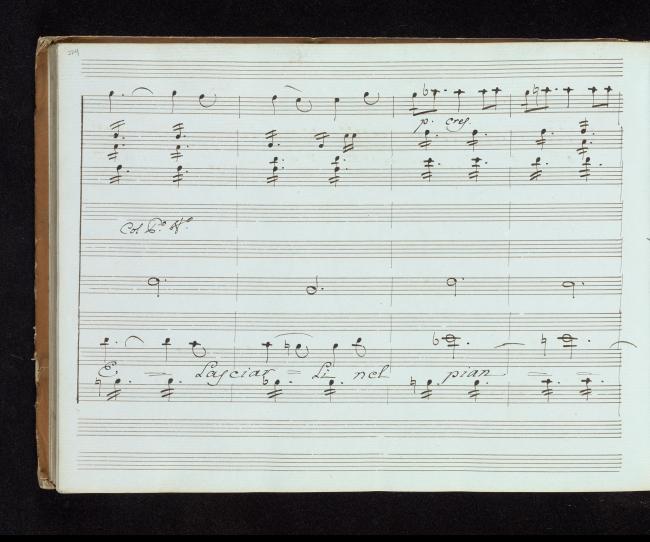 p. cres.
Col P.º V.º
E, = Lasciar = Li nel pian = =